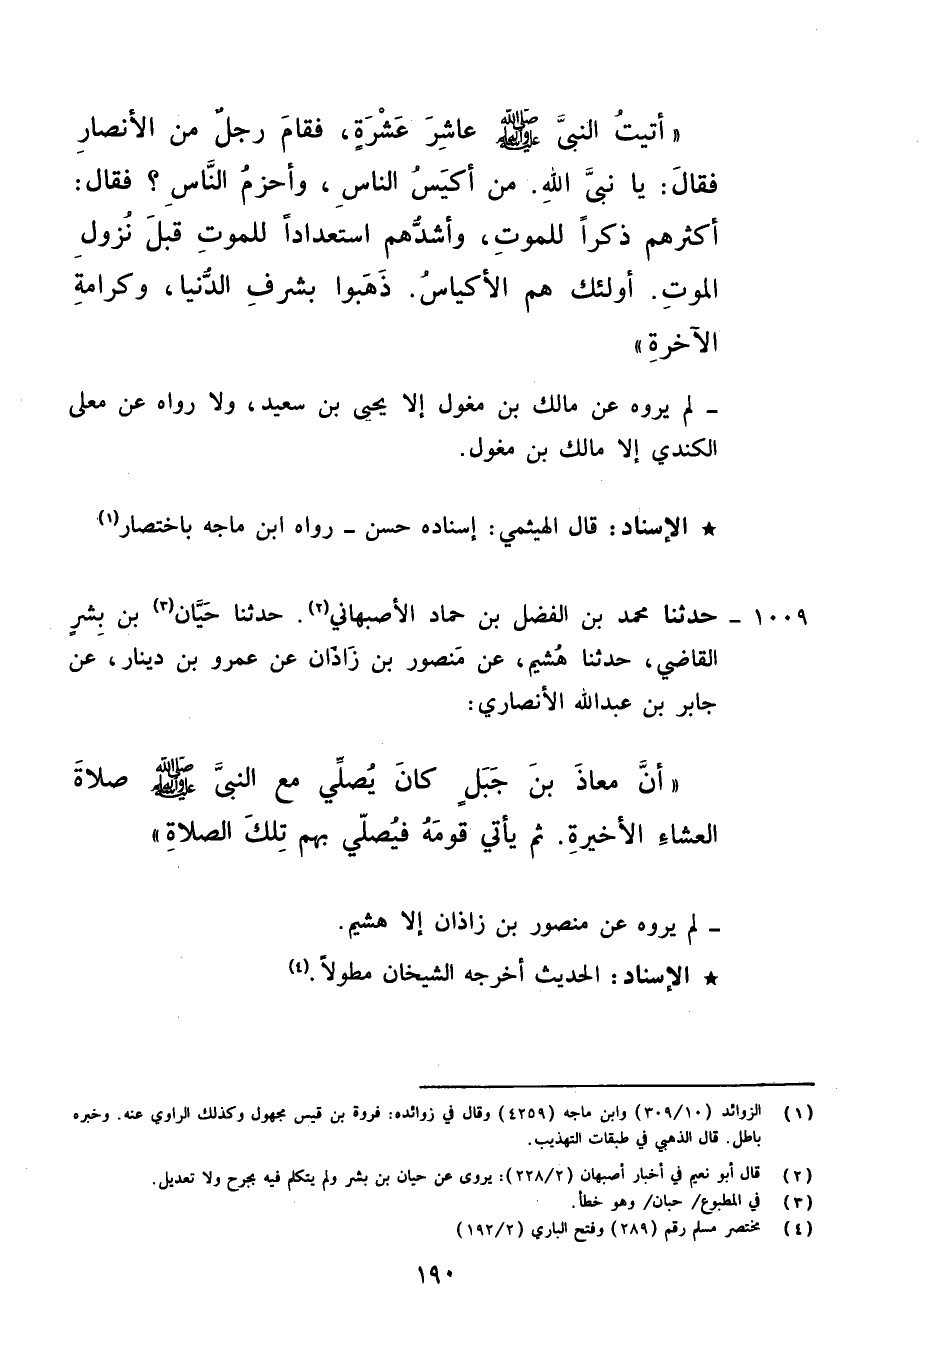 « أتيتُ النبيَّ ﷺ عاشِرَ عَشْرَةٍ، فقامَ رجلٌ من الأنصارِ
فقالَ: يا نبيَّ اللهِ. من أكيَسُ الناسِ، وأحزمُ النَّاسِ ؟ فقال:
أكثرهم ذكراً للموتِ، وأشدُّهم استعداداً للموتِ قبلَ نُزولِ
الموتِ. أولئك هم الأكياسُ. ذَهَبوا بشرفِ الدُّنيا، وكرامةِ
الآخرةِ»
ـ لم يروه عن مالك بن مغول إلا يحيى بن سعيد، ولا رواه عن معلى
الكندي إلا مالك بن مغول.
★ الإسناد: قال الهيثمي: إسناده حسن ـ رواه ابن ماجه باختصار(١)
١٠٠٩ ـ حدثنا محمد بن الفضل بن حماد الأصبهاني(٢). حدثنا حَيَّان(٣) بن بِشرٍ
القاضي، حدثنا هُشيم، عن مَنصور بن زَاذَان عن عمرو بن دينار، عن
جابر بن عبدالله الأنصاري:
« أنَّ معاذَ بنَ جَبَلٍ كانَ يُصلِّي مع النبيَّ ﷺ صلاةَ
العشاءِ الأخيرةِ. ثم يأتي قومَهُ فيُصلّي بهم تِلكَ الصلاةِ»
ـ لم يروه عن منصور بن زاذان إلا هشيم.
★ الإسناد: الحديث أخرجه الشيخان مطولاً.(٤)
(١) الزوائد (٣٠٩/١٠) وابن ماجه (٤٢٥٩) وقال في زوائده: فروة بن قيس مجهول وكذلك الراوي عنه. وخبره
باطل. قال الذهبي في طبقات التهذيب.
(٢) قال أبو نعيم في أخبار أصبهان (٢٢٨/٢): يروى عن حيان بن بشر ولم يتكلم فيه بجرح ولا تعديل.
(٣) في المطبوع/ حبان/ وهو خطأ.
(٤) مختصر مسلم رقم (٢٨٩) وفتح الباري (١٩٢/٢)
١٩٠